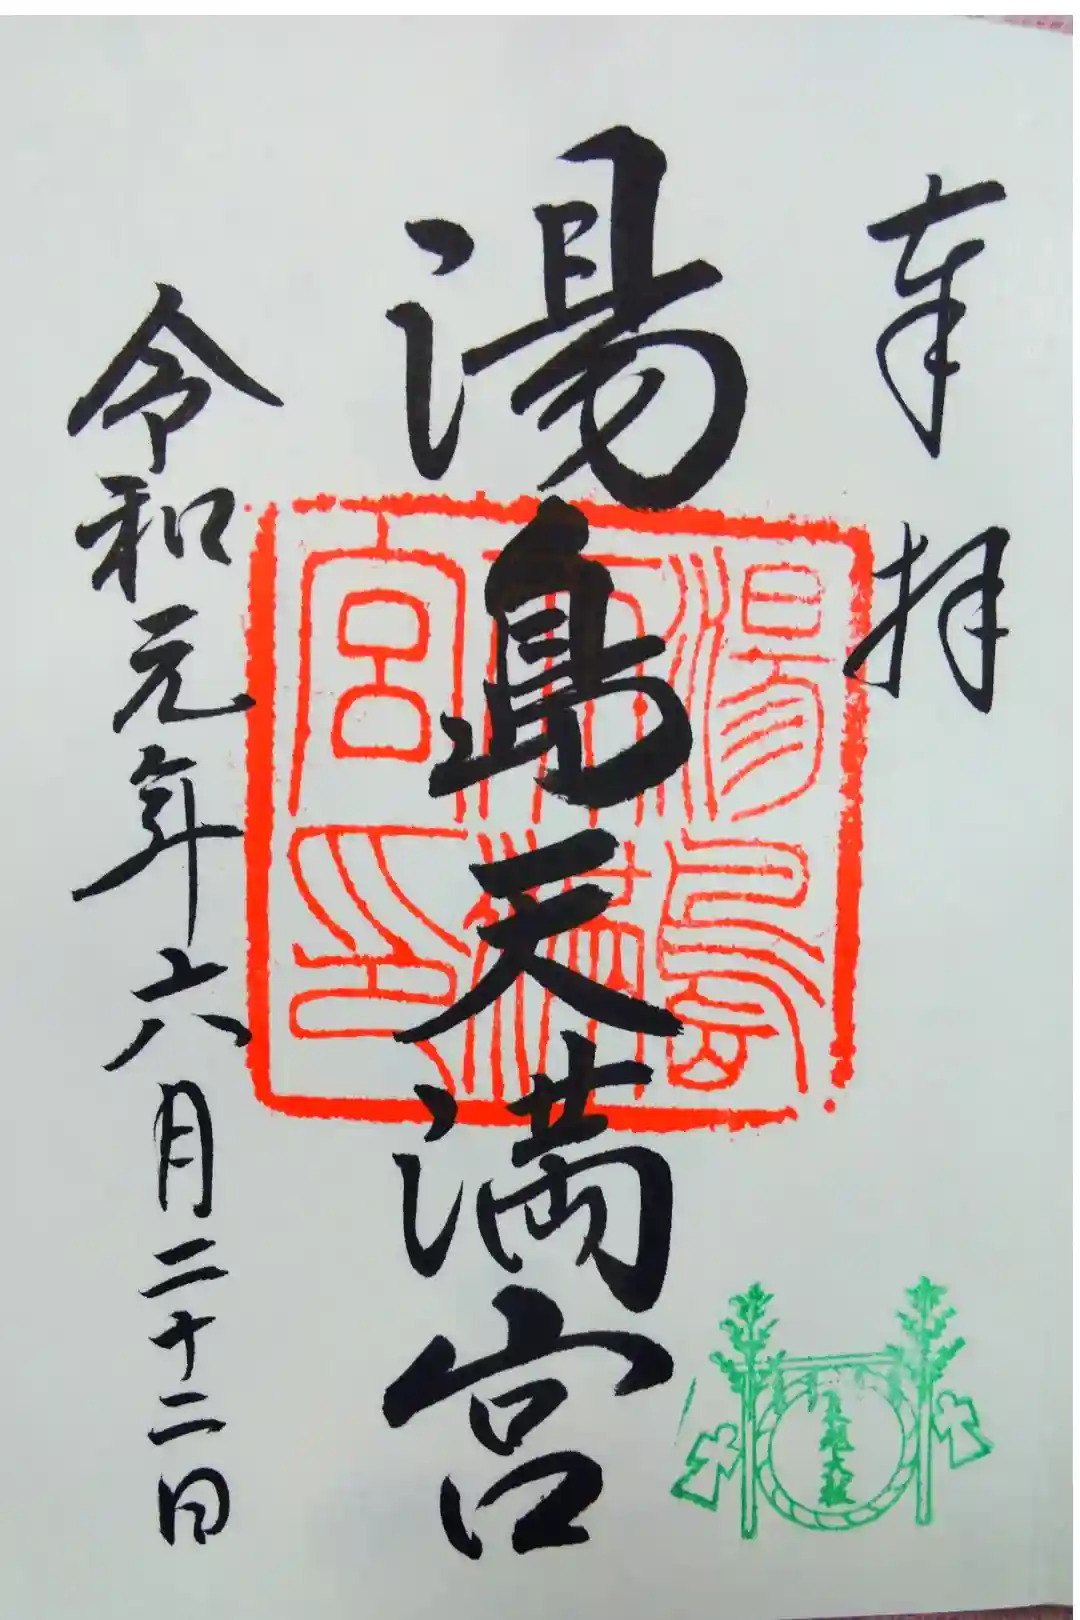 奉拝
湯島天満宮
湯島天満宮印
令和元年六月二十二日
夏越大祓